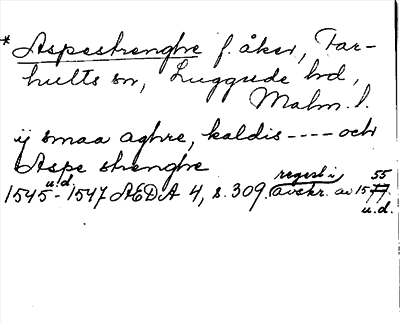 * Aspestrenghe f. åker, Far-
hults sn, Luggude hd,
Malm. l.
ij smaa aghre, kaldis ---- och
Aspe strenghe
u.d. 55
1545 - 1547 ÆDA 4, s. 309. regest i avskr. av 1577.
u.d.